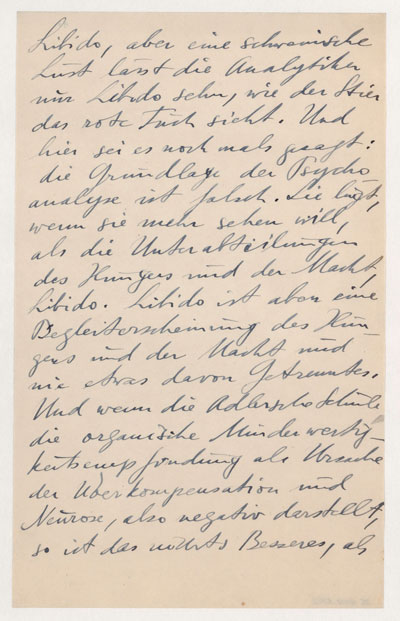 Libido, aber eine schwanische
Lust lässt die Analytiker
nur Libido sehn, wie der Stier
das rote Tuch sieht. Und
hier sei es noch mals gesagt:
die Grundlage der Psycho
analyse ist falsch. Sie lügt,
wenn sie mehr sehen will,
als die Unterabteilungen
des Hungers und der Macht,
Libido. Libido ist aber eine
Begleiterscheinung des Hun-
gers und der Macht und
nie etwas davon Getrenntes.
Und wenn die Adlersche Schule
die organische Minderwertig-
keitsempfindung als Ursache
der Überkompensation und
Neurose, also negativ darstellt,
so ist das nichts Besseres, als